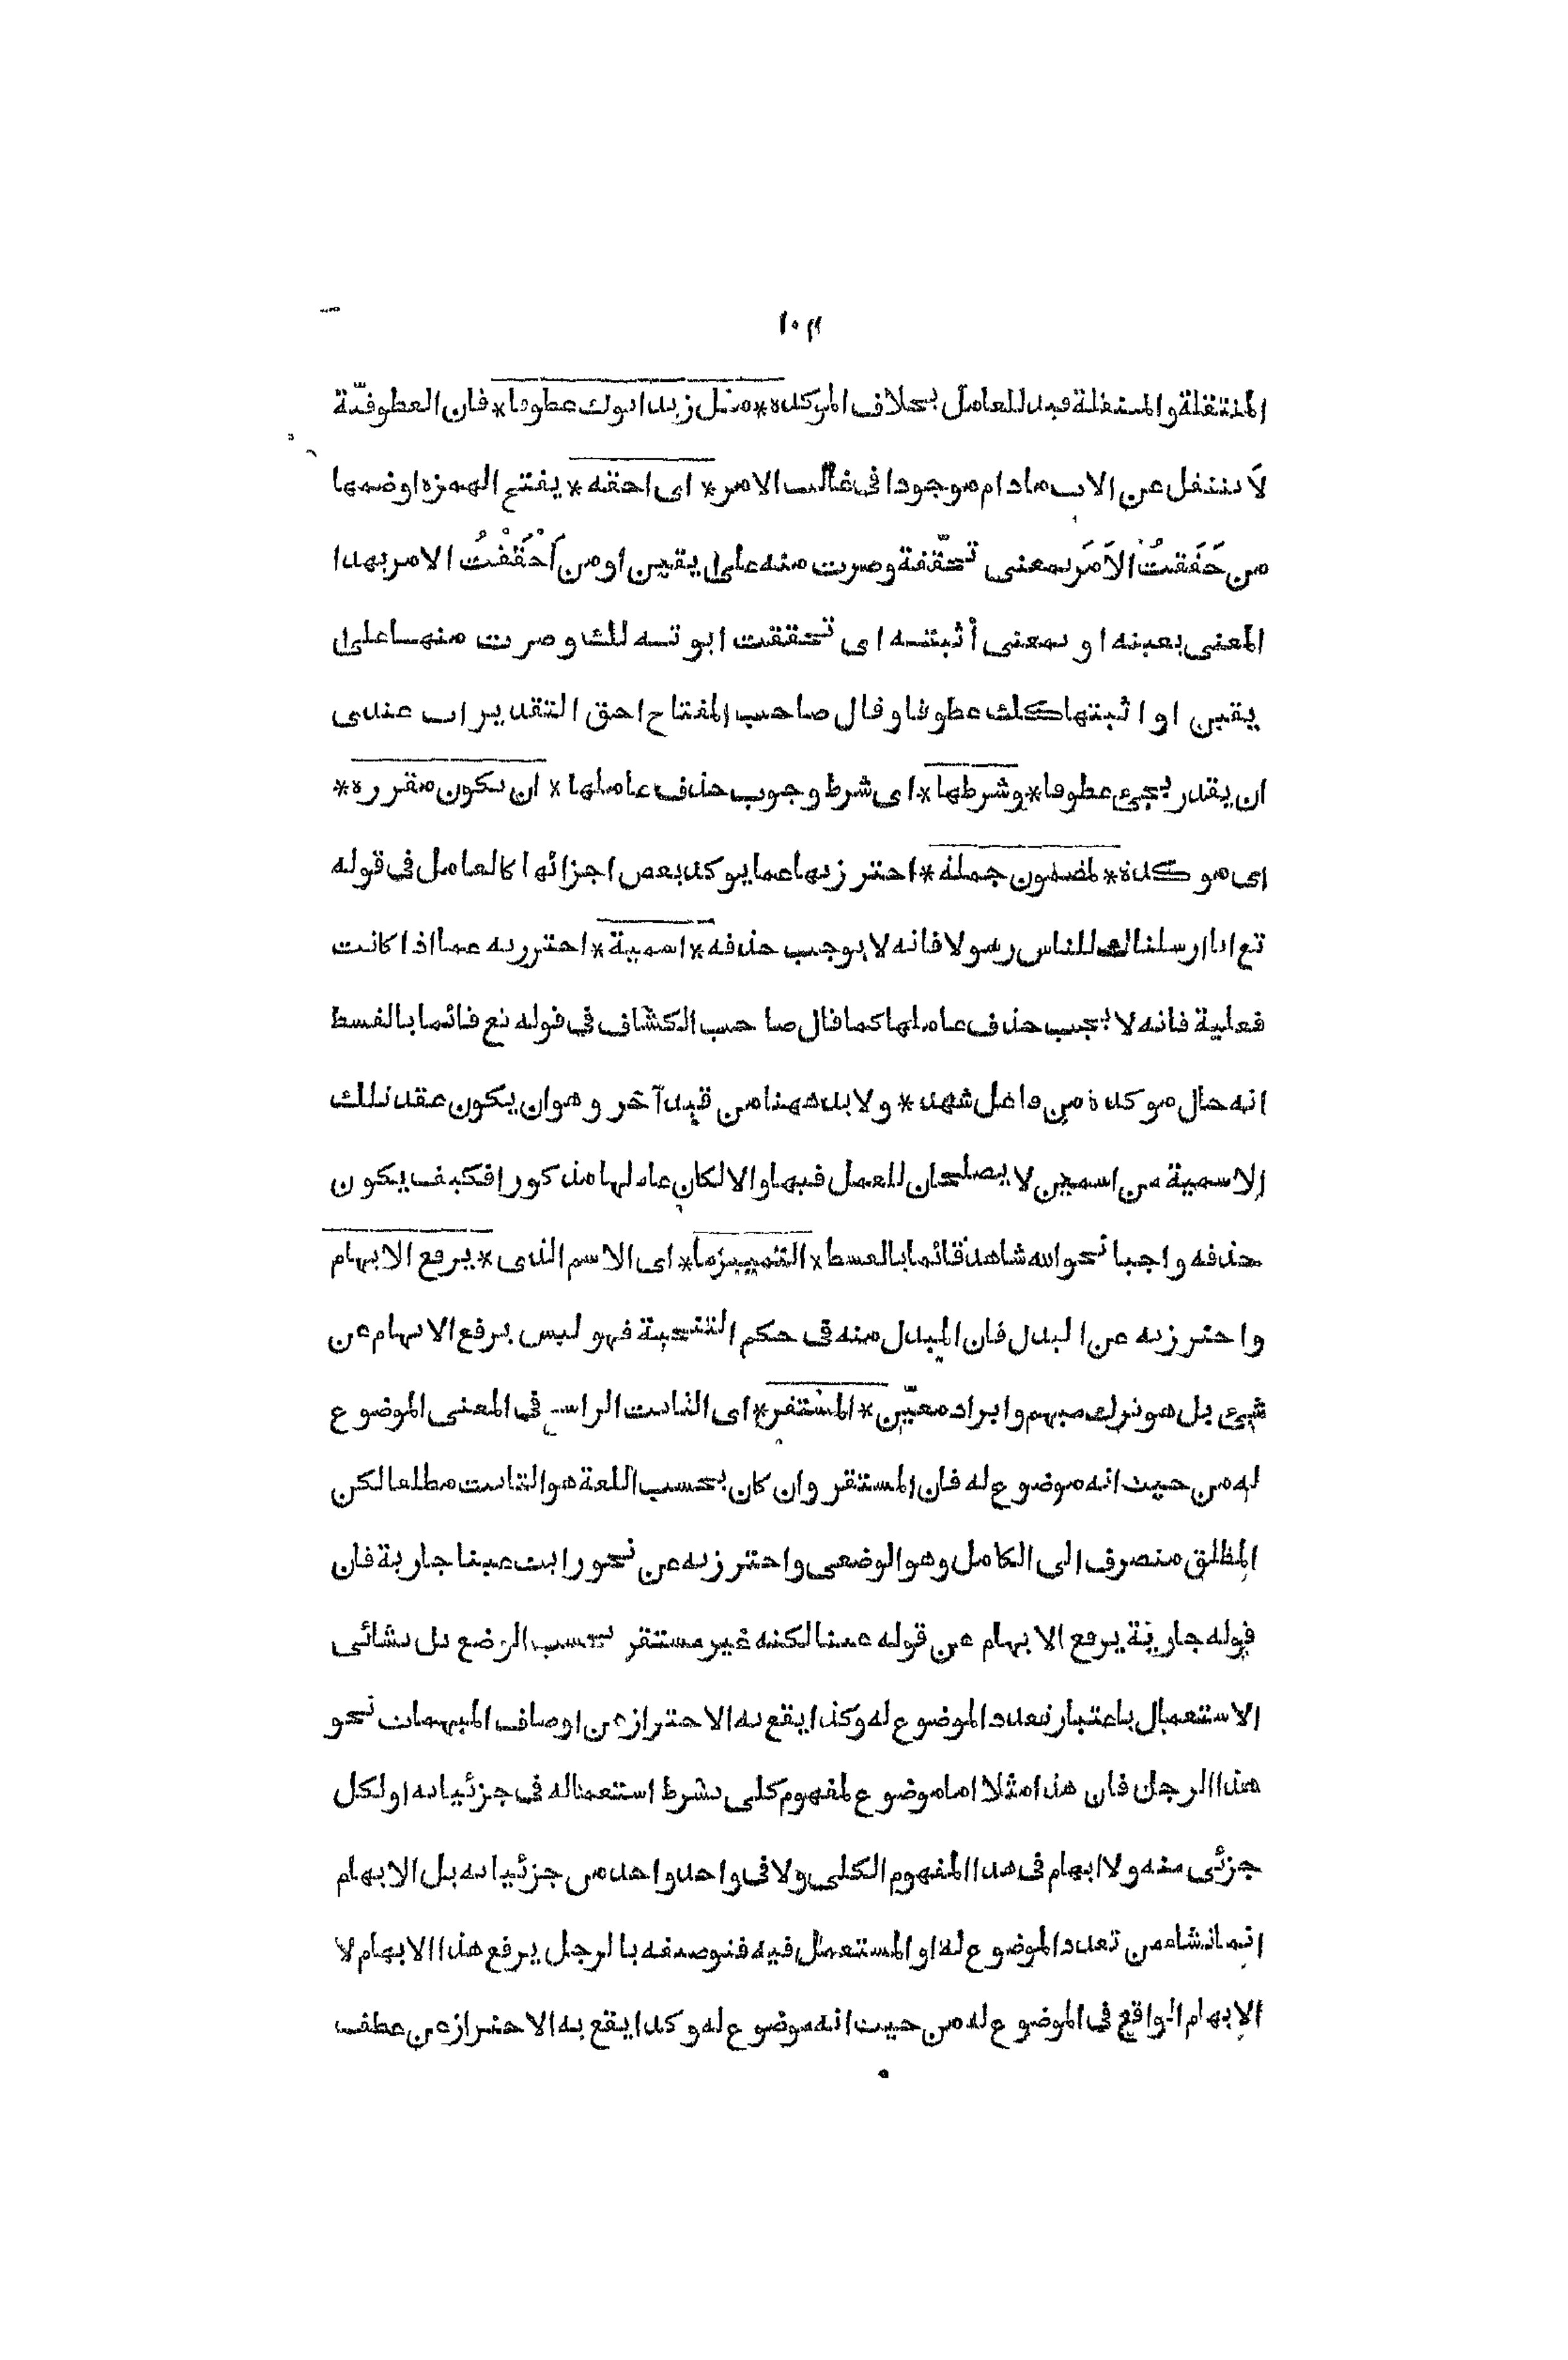 ١٠٣
المنتقلة والمنتقلة قيد للعامل بخلاف المؤكدة * مثل زيد ابوك عطوفا * فان العطوفيّة
لَا تنتقل عن الاب مادام موجودا فى غالب الامر * اى احقه * يفتح الهمزه او ضمها
من حَقَقتُ الاَمَر بمعنى تحقّقته وصرت منه على يقين او من اَحْقَقْتُ الامر بهذا
المعنى بعينه او بمعنى أثبتـه اى تحققت ابوته لك وصرت منها على
يقين او اثبتها لك عطوفا وقال صاحب المفتاح احق التقديرات عندى
ان يقدر يجىء عطوفا * وشرطها * اى شرط وجوب حذف عاملها * ان تكون مقرره *
اى مؤكدة * لمضمون جملة * احترز بها عما يؤكد بعض اجزائها كالعامل فى قوله
تع انا ارسلناك للناس رسولا فانه لا يوجب حذفه * اسمية * احترز به عما اذا كانت
فعلية فانه لا يجب حذف عاملها كما قال صاحب الكشاف فى قوله تع قائما بالقسط
انه حال موكدة من فاعل شهد * ولا بد ههنا من قيد آخر وهو ان يكون عقد تلك
الاسمية من اسمين لا يصلحان للعمل فيها والا لكان عاملها مذكورا فكيف يكون
حذفه واجبا نحو الله شاهد قائما بالقسط * التمييز ما * اى الاسم الذى * يرفع الابهام
واحترز به عن البدل فان المبدل منه فى حكم التنحية فهو ليس يرفع الابهام عن
شىء بل هو ترك مبهم وايراد معيّن * المستقر * اى الثابت الراسخ فى المعنى الموضوع
له من حيث انه موضوع له فان المستقر وان كان بحسب اللغة هو الثابت مطلقا لكن
المطلق منصرف الى الكامل وهو الوضعى واحترز به عن نحو رايت عينا جارية فان
قوله جارية يرفع الابهام عن قوله عينا لكنه غير مستقر بحسب الوضع بل نشا فى
الاستعمال باعتبار تعدد الموضوع له وكذا يقع به الاحتراز عن اوصاف المبهمات نحو
هذا الرجل فان هذا مثلا اما موضوع لمفهوم كلى بشرط استعماله فى جزئياته او لكل
جزئى منه ولا ابهام فى هذا المفهوم الكلى ولا فى واحد واحد من جزئياته بل الابهام
انما نشاء من تعدد الموضوع له او المستعمل فيه فتوصيفه بالرجل يرفع هذا الابهام لا
الابهام الواقع فى الموضوع له من حيث انه موضوع له وكذا يقع به الاحتراز عن عطف